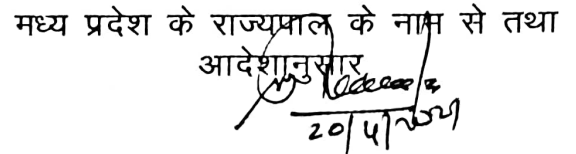 मध्य प्रदेश के राज्यपाल के नाम से तथा
आदेशानुसार
20/4/2021